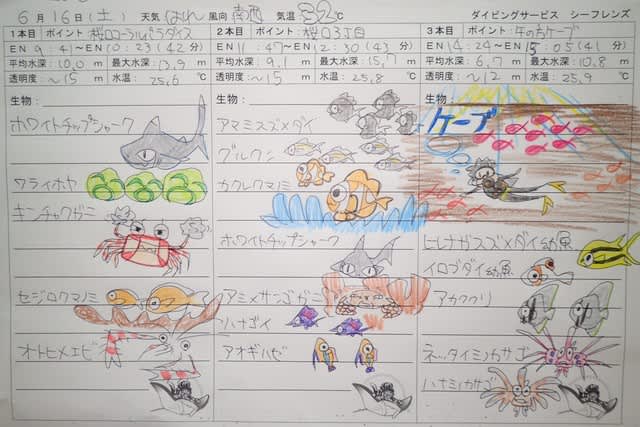 6月16日(土) 天気 はれ 風向 南西 気温 32℃ ダイビングサービス シーフレンズ
1本目 ポイント 桜口コーラルパラダイス
EN 9:41〜EN 10:23(42分)
平均水深 10.0 m 最大水深 13.9 m
透明度 〜15 m 水温 25.6 ℃
生物
ホワイトチップシャーク
ワライボヤ
キンチャクガニ
セジロクマノミ
オトヒメエビ
2本目 ポイント 桜口3丁目
EN 11:47〜EN 12:30(43分)
平均水深 9.1 m 最大水深 15.7 m
透明度 〜15 m 水温 25.8 ℃
生物
アマミスズメダイ
グルクン
カクレクマノミ
ホワイトチップシャーク
アミメサンゴガニ
ハナゴイ
アオギハゼ
3本目 ポイント
EN 14:24〜EN 15:05(41分)
平均水深 6.7 m 最大水深 10.8 m
透明度 〜12 m 水温 25.9 ℃
生物
ケーブ
ヒレナガスズメダイ幼魚
イロブダイ幼魚
アカククリ
ネッタイミノカサゴ
ハナミノカサゴ